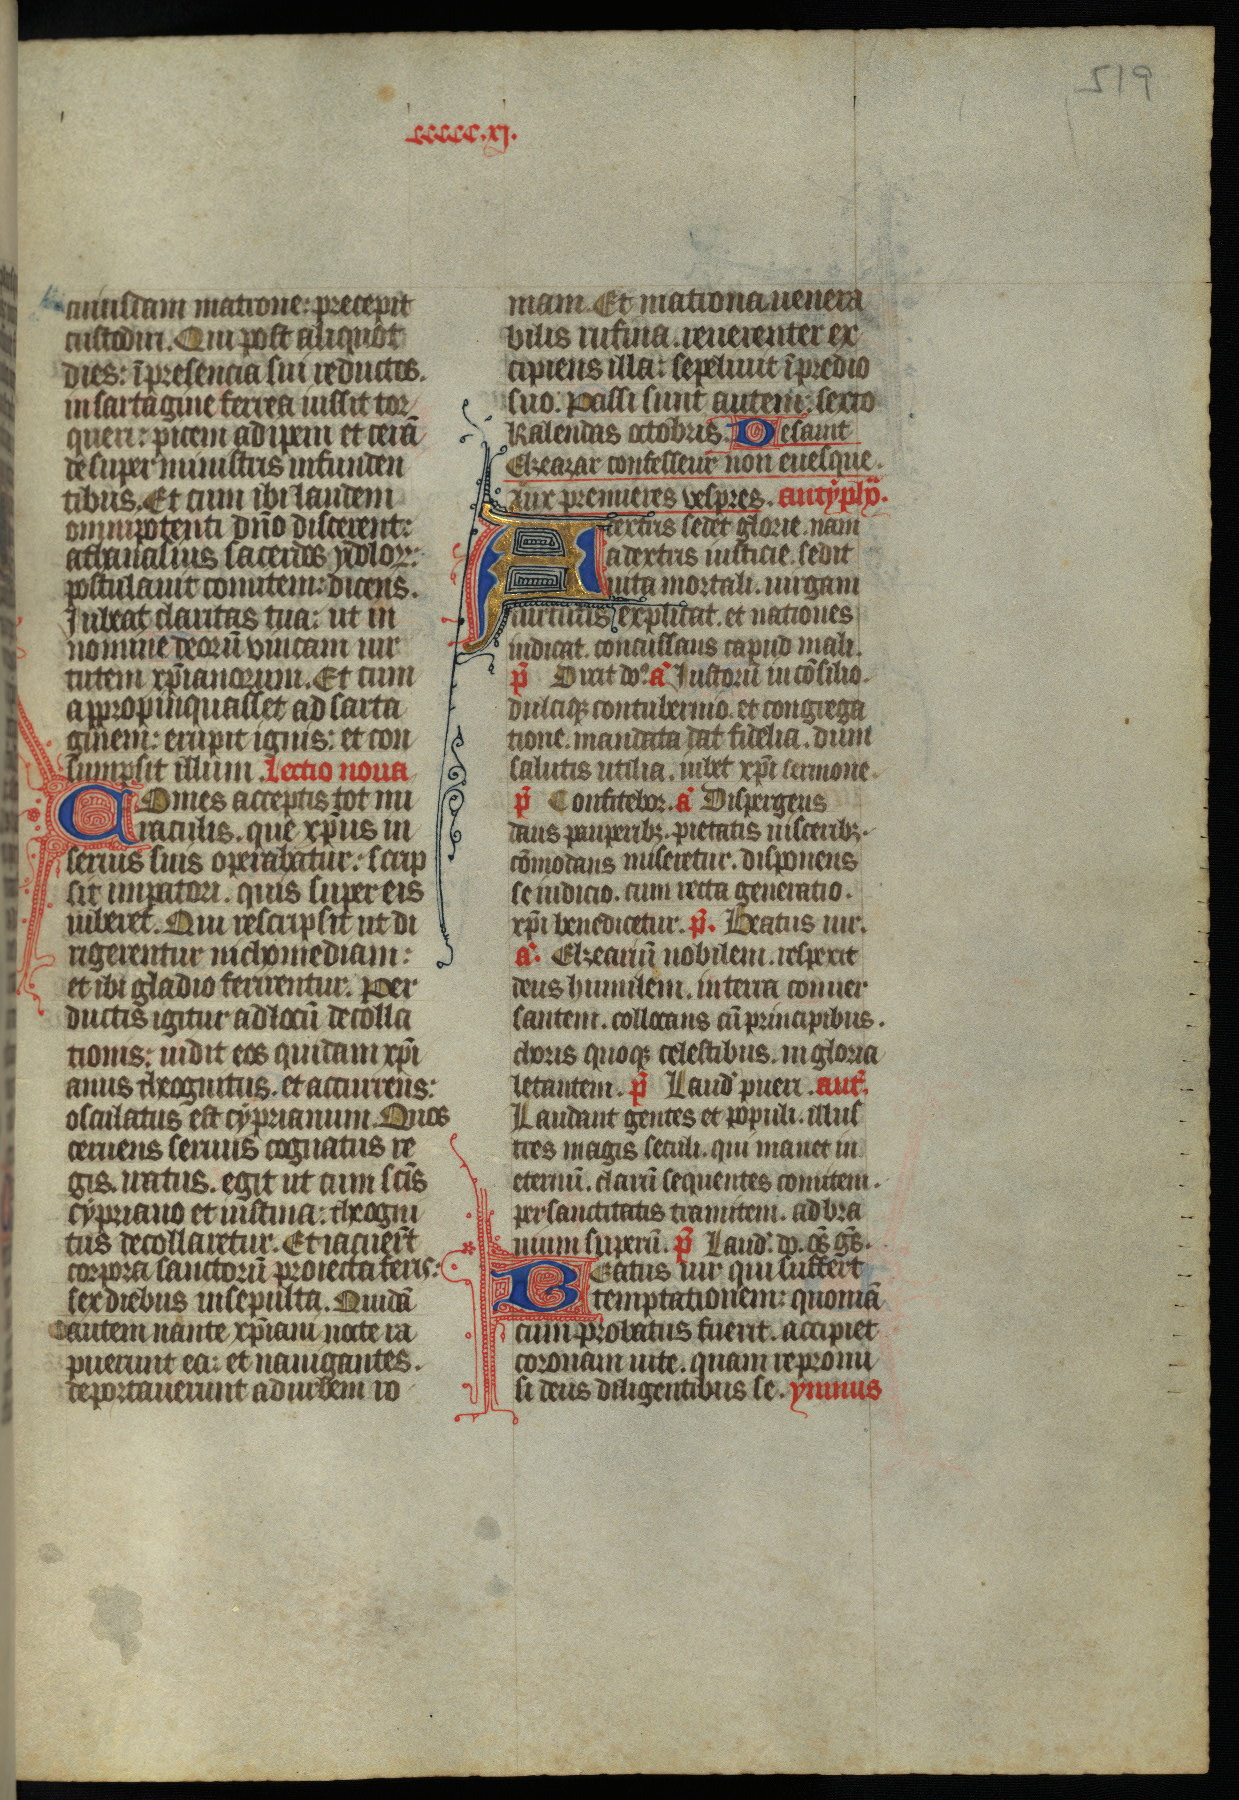 519
ccccc.xj.
cuiusdam matrone: precepit
custodiri. Qui post aliquot
dies: ĩpresencia sui reductos.
in sartagine ferrea iussit tor-
queri: picem adipem et cerã
desuper ministris infunden
tibus. Et cum ibi laudem
omnipotenti dño dicerent:
athanasius sacerdos ydolor̃:
postulauit comitem: dicens.
Iubeat claritas tua: ut in
nomine deorũ vincam uir
tutem xp̃ianorum. Et cum
appropinquasset ad sarta
ginem: erupit ignis: et con
sumpsit illum. Lectio nona
Comes acceptis tot mi
raculis. que xp̃us in
seruis suis operabatur: scrip
sit impatori. quis super eis
iuberet. Qui rescripsit ut di
rigerentur nichomediam:
et ibi gladio ferirentur. Per
ductis igitur ad locũ decolla
tionis: uidit eos quidam xp̃i
anus theognitus. et accurrens:
osculatus est cyprianum. Quos
cernens seruus cognatus re
gis. iratus. egit ut cum scĩs
cypriano et iustina: theogni
tus decollaretur. Et iacuer̃t
corpora sanctorũ proiecta feris:
sex diebus insepulta. Quidã
autem nante xp̃iani nocte ra
puerunt ea: et nauigantes.
deportauerunt ad urbem ro
mam. Et matrona uenera
bilis rufina. reuerenter ex
cipiens illa: sepeliuit ĩpredio
suo. Passi sunt autem: sexto
Kalendas octobris. De saint
Elzeazar confesseur non euesque.
Aux premieres vespres. antyphõ.
A dextris sedet glorie. nam
a dextris iusticie. sedit
uita mortali. uirgam
uirtutis explicat. et nationes
iudicat. conculcans capud mali.
p̃ Dixit dñs. a Iustorũ in cõsilio.
dulciqꝫ contubernio. et congrega
tione. mandata dat fidelia. dum
salutis utilia. iubet xp̃i sermone.
p̃ Confitebor. a Dispergens
dans pauperibꝫ. pietatis uisceribꝫ.
cõmodans miseretur. disponens
se iudicio. cum recta generatio.
xp̃i benedicetur. p̃. Beatus uir.
a. Elzeariũ nobilem. respexit
deus humilem. in terra conuer
santem. collocans cũ principibus.
choris quoqꝫ celestibus. in gloria
letantem. p̃ Laud' pueri. ant'.
Laudant gentes et populi. illus
tres magis seculi. qui manet in
eternũ. clarũ sequentes comitem.
per sanctitatis tramitem. ad bra
uium superũ. p̃ Laud'. dñ. os̃ gs̃.
Beatus uir qui suffert
temptationem: quoniã
cum probatus fuerit. accipiet
coronam uite. quam repromi
sit deus diligentibus se. ymnus